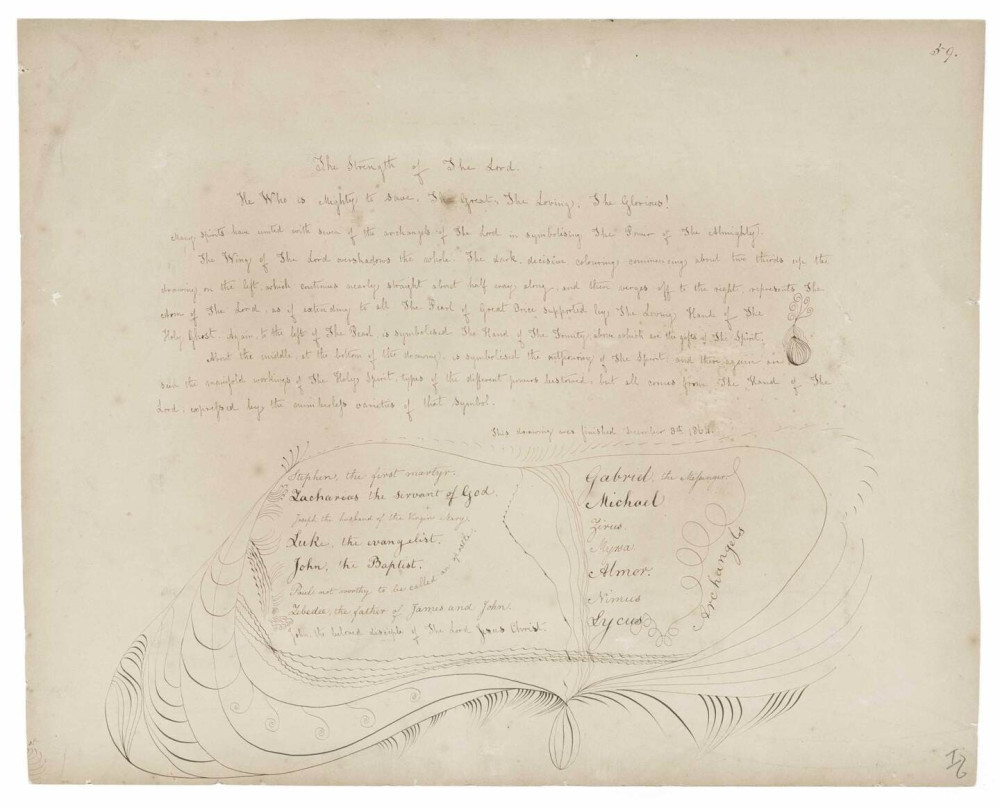 59.
The Strength of The Lord.
He Who is Mighty to Save. The Great, The Loving, The Glorious!
Many spirits have united with seven of the archangels of The Lord in symbolising The Power of The Almighty.
The Wing of The Lord overshadows the whole The dark, decisive colouring commencing about two thirds up the
drawing on the left, which continues nearly straight about half way along, and then verges off to the right, represents The
Arm of The Lord, as if extending to all The Pearl of Great Price supported by The Loving Hand of The
Holy Ghost. Again, to the left of The Pearl, is symbolised The Hand of The Trinity, above which are the gifts of The Spirit.
About the middle, at the bottom of the drawing, is symbolised the outpouring of The Spirit, and then again are
seen the manifold workings of The Holy Spirit, types of the different powers bestowed, but all comes from The Hand of The
Lord, expressed by the numberless varieties of that symbol.
This drawing was finished December 3rd
Stephen, the first martyr.
Zacharias the servant of God.
Joseph the husband of the Virgin Mary.
Luke, the evangelist.
John, the Baptist.
Paul not worthy to be called an apostle.
Zebedee, the father of James and John.
John, the beloved disciple of The Lord Jesus Christ.
Gabriel, the Messenger
Michael
Zirus.
Almor.
Nimus
Lycus
Archangels